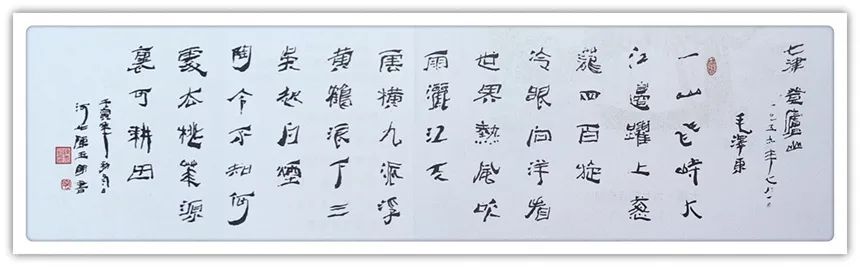 七律 登廬山
一九五九年七
毛澤東
一山飛峙大
江邊躍上葱
蘢四百旋
冷眼向洋看
世界熱風吹
雨灑江天
雲橫九派浮
黃鶴浪下三
吳起白煙
陶令不知何
處去桃花源
裏可耕田
壬寅年
書